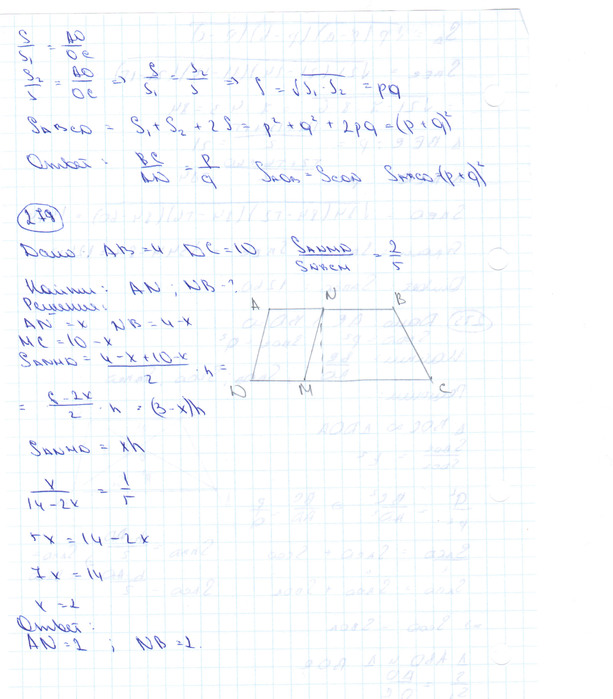 S/S₁ = AO/OC
S₂/S = AO/OC ⇒ S/S₁ = S₂/S ⇒ S = √S₁·S₂ = pq
S_ABCD = S₁ + S₂ + 2S = p² + q² + 2pq = (p + q)²
Ответ: BC/AD = p/q S_AOB = S_COD S_ABCD = (p + q)²
279
Дано: AB = 4 DC = 10 S_ANMD/S_NBCM = 2/5
Найти: AN ; NB - ?
Решение:
AN = x NB = 4-x
MC = 10 - x
S_ANMD = 4-x+10-x/2 · h =
= 6-2x/2 · h = (3-x)h
S_ANMD = xh
x/14-2x = 1/5
5x = 14 - 2x
7x = 14
x = 2
Ответ:
AN = 2 ; NB = 2.
A N B
D M C